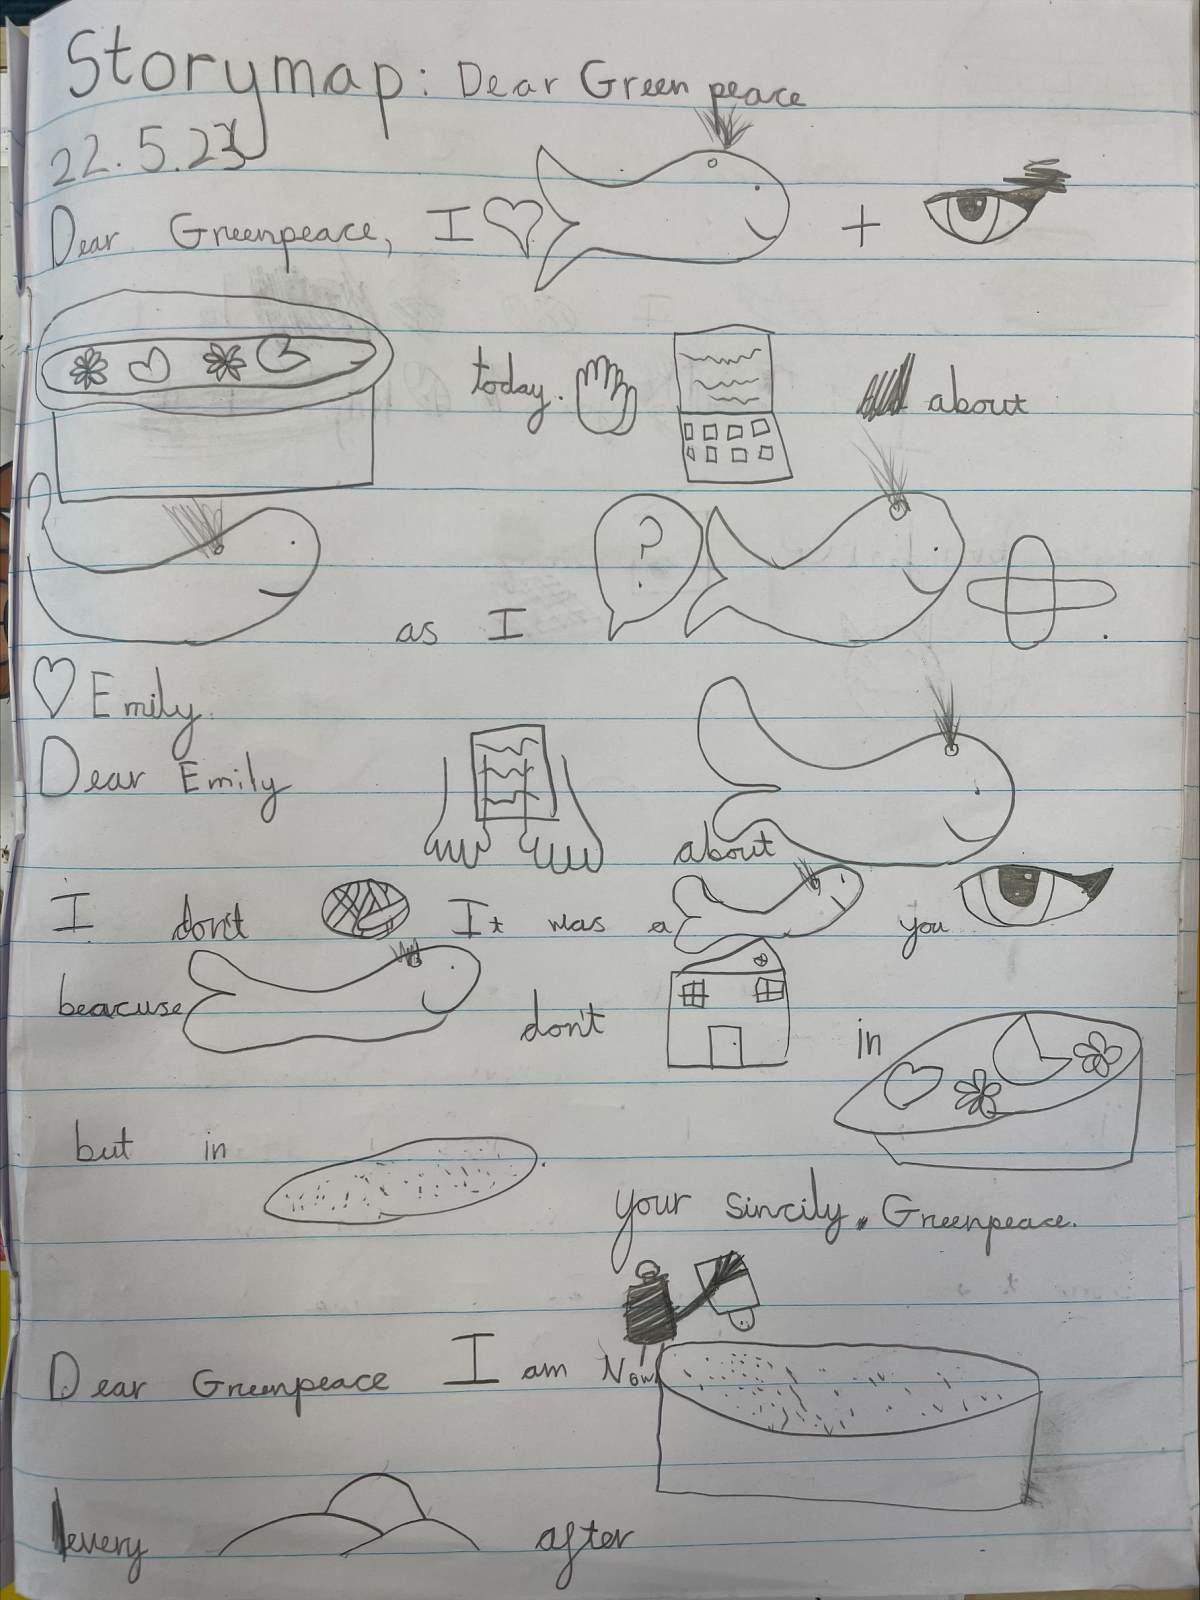 Storymap: Dear Green peace
22.5.23
Dear Greenpeace, I +
today. about
? as I .
Emily.
Dear Emily
about
I don't It was a you
beacuse don't in
but in .
your sincily. Greenpeace.
Dear Greenpeace I am Now
every after